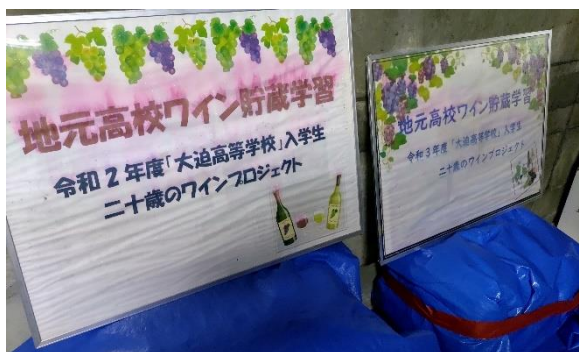 地元高校ワイン貯蔵学習
令和2年度「大迫高等学校」入学生
二十歳のワインプロジェクト
地元高校ワイン貯蔵学習
令和3年度「大迫高等学校」入学生
二十歳のワインプロジェクト